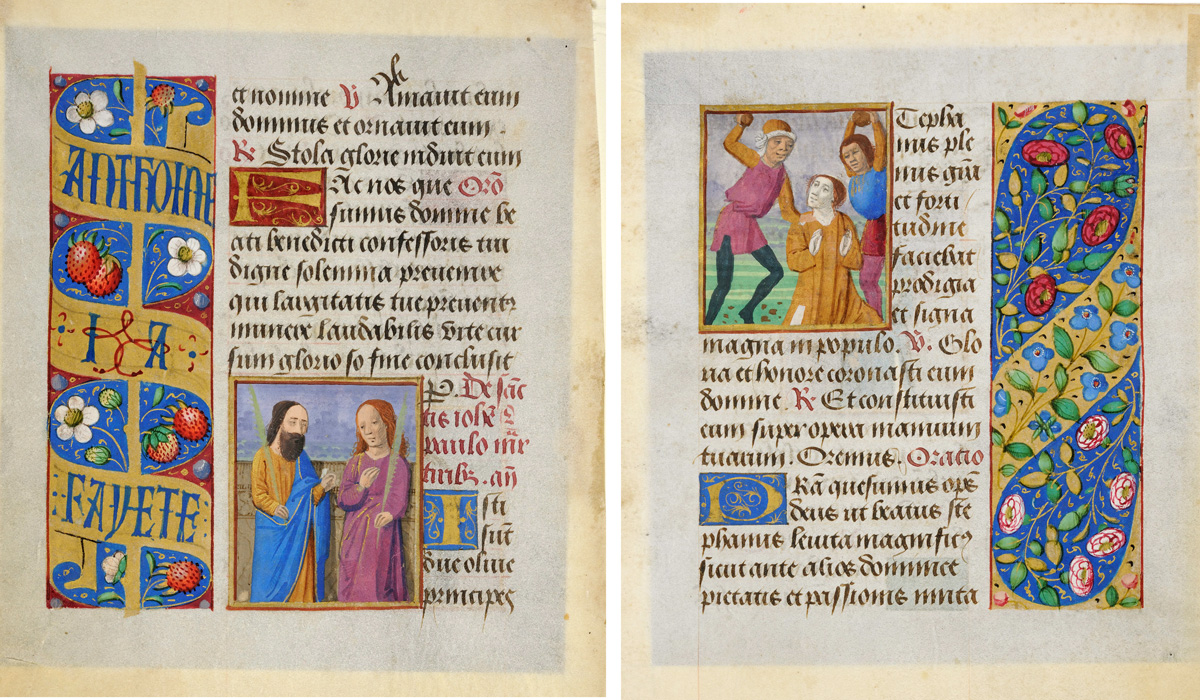 ANTHOINE
I A
FAYETE
et nomine V Amauit eum
dominus et ornauit eum .
R Stola glorie induit eum
FAc nos que Orō
sumus domine be
ati benedicti confessoris tui
digne solemnia preuenire
qui largitatis tue
munere laudabilis vite cur
sum glorio so fine conclusit
De sāc
tis iohē
paulo
ān
Isti
sūt
due oliue
principes
Stepha
nus ple
nus
et forti
tudine
faciebat
prodigia
et signa
magna in populo . V. Glo
ria et honore coronasti eum
domine . R Et constituisti
eum super opera manuum
tuarum . Oremus . Oratio
DA quesumus
deus ut beatus ste
phanus leuita magnific9
sicut ante alios dominice
pietatis et passionis imita